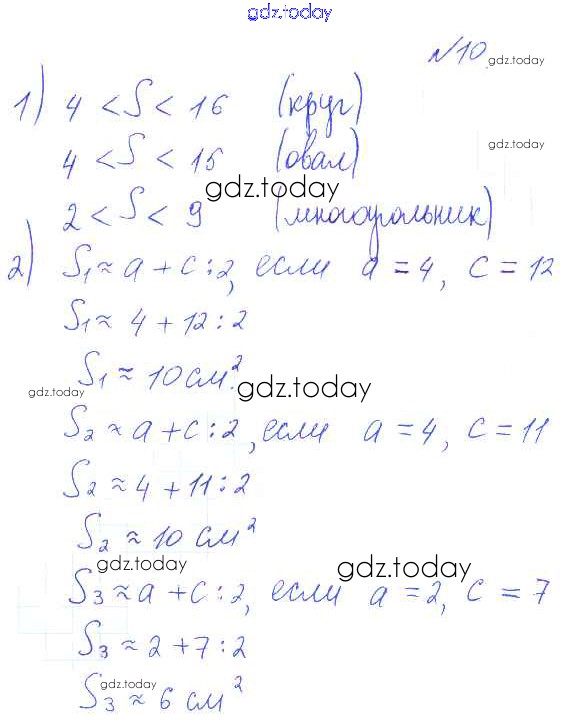 gdz.today
№10 gdz.today
1) 4 < S < 16 (круг)
4 < S < 15 (овал)
gdz.today
2 < S < 9 (многоугольник)
2) S₁ ≈ a + c : 2, если a = 4, c = 12
S₁ ≈ 4 + 12 : 2
S₁ ≈ 10 см².
gdz.today
gdz.today
S₂ ≈ a + c : 2, если a = 4, c = 11
S₂ ≈ 4 + 11 : 2
S₂ ≈ 10 см²
gdz.today
gdz.today
S₃ ≈ a + c : 2, если a = 2, c = 7
S₃ ≈ 2 + 7 : 2
gdz.today
S₃ ≈ 6 см²